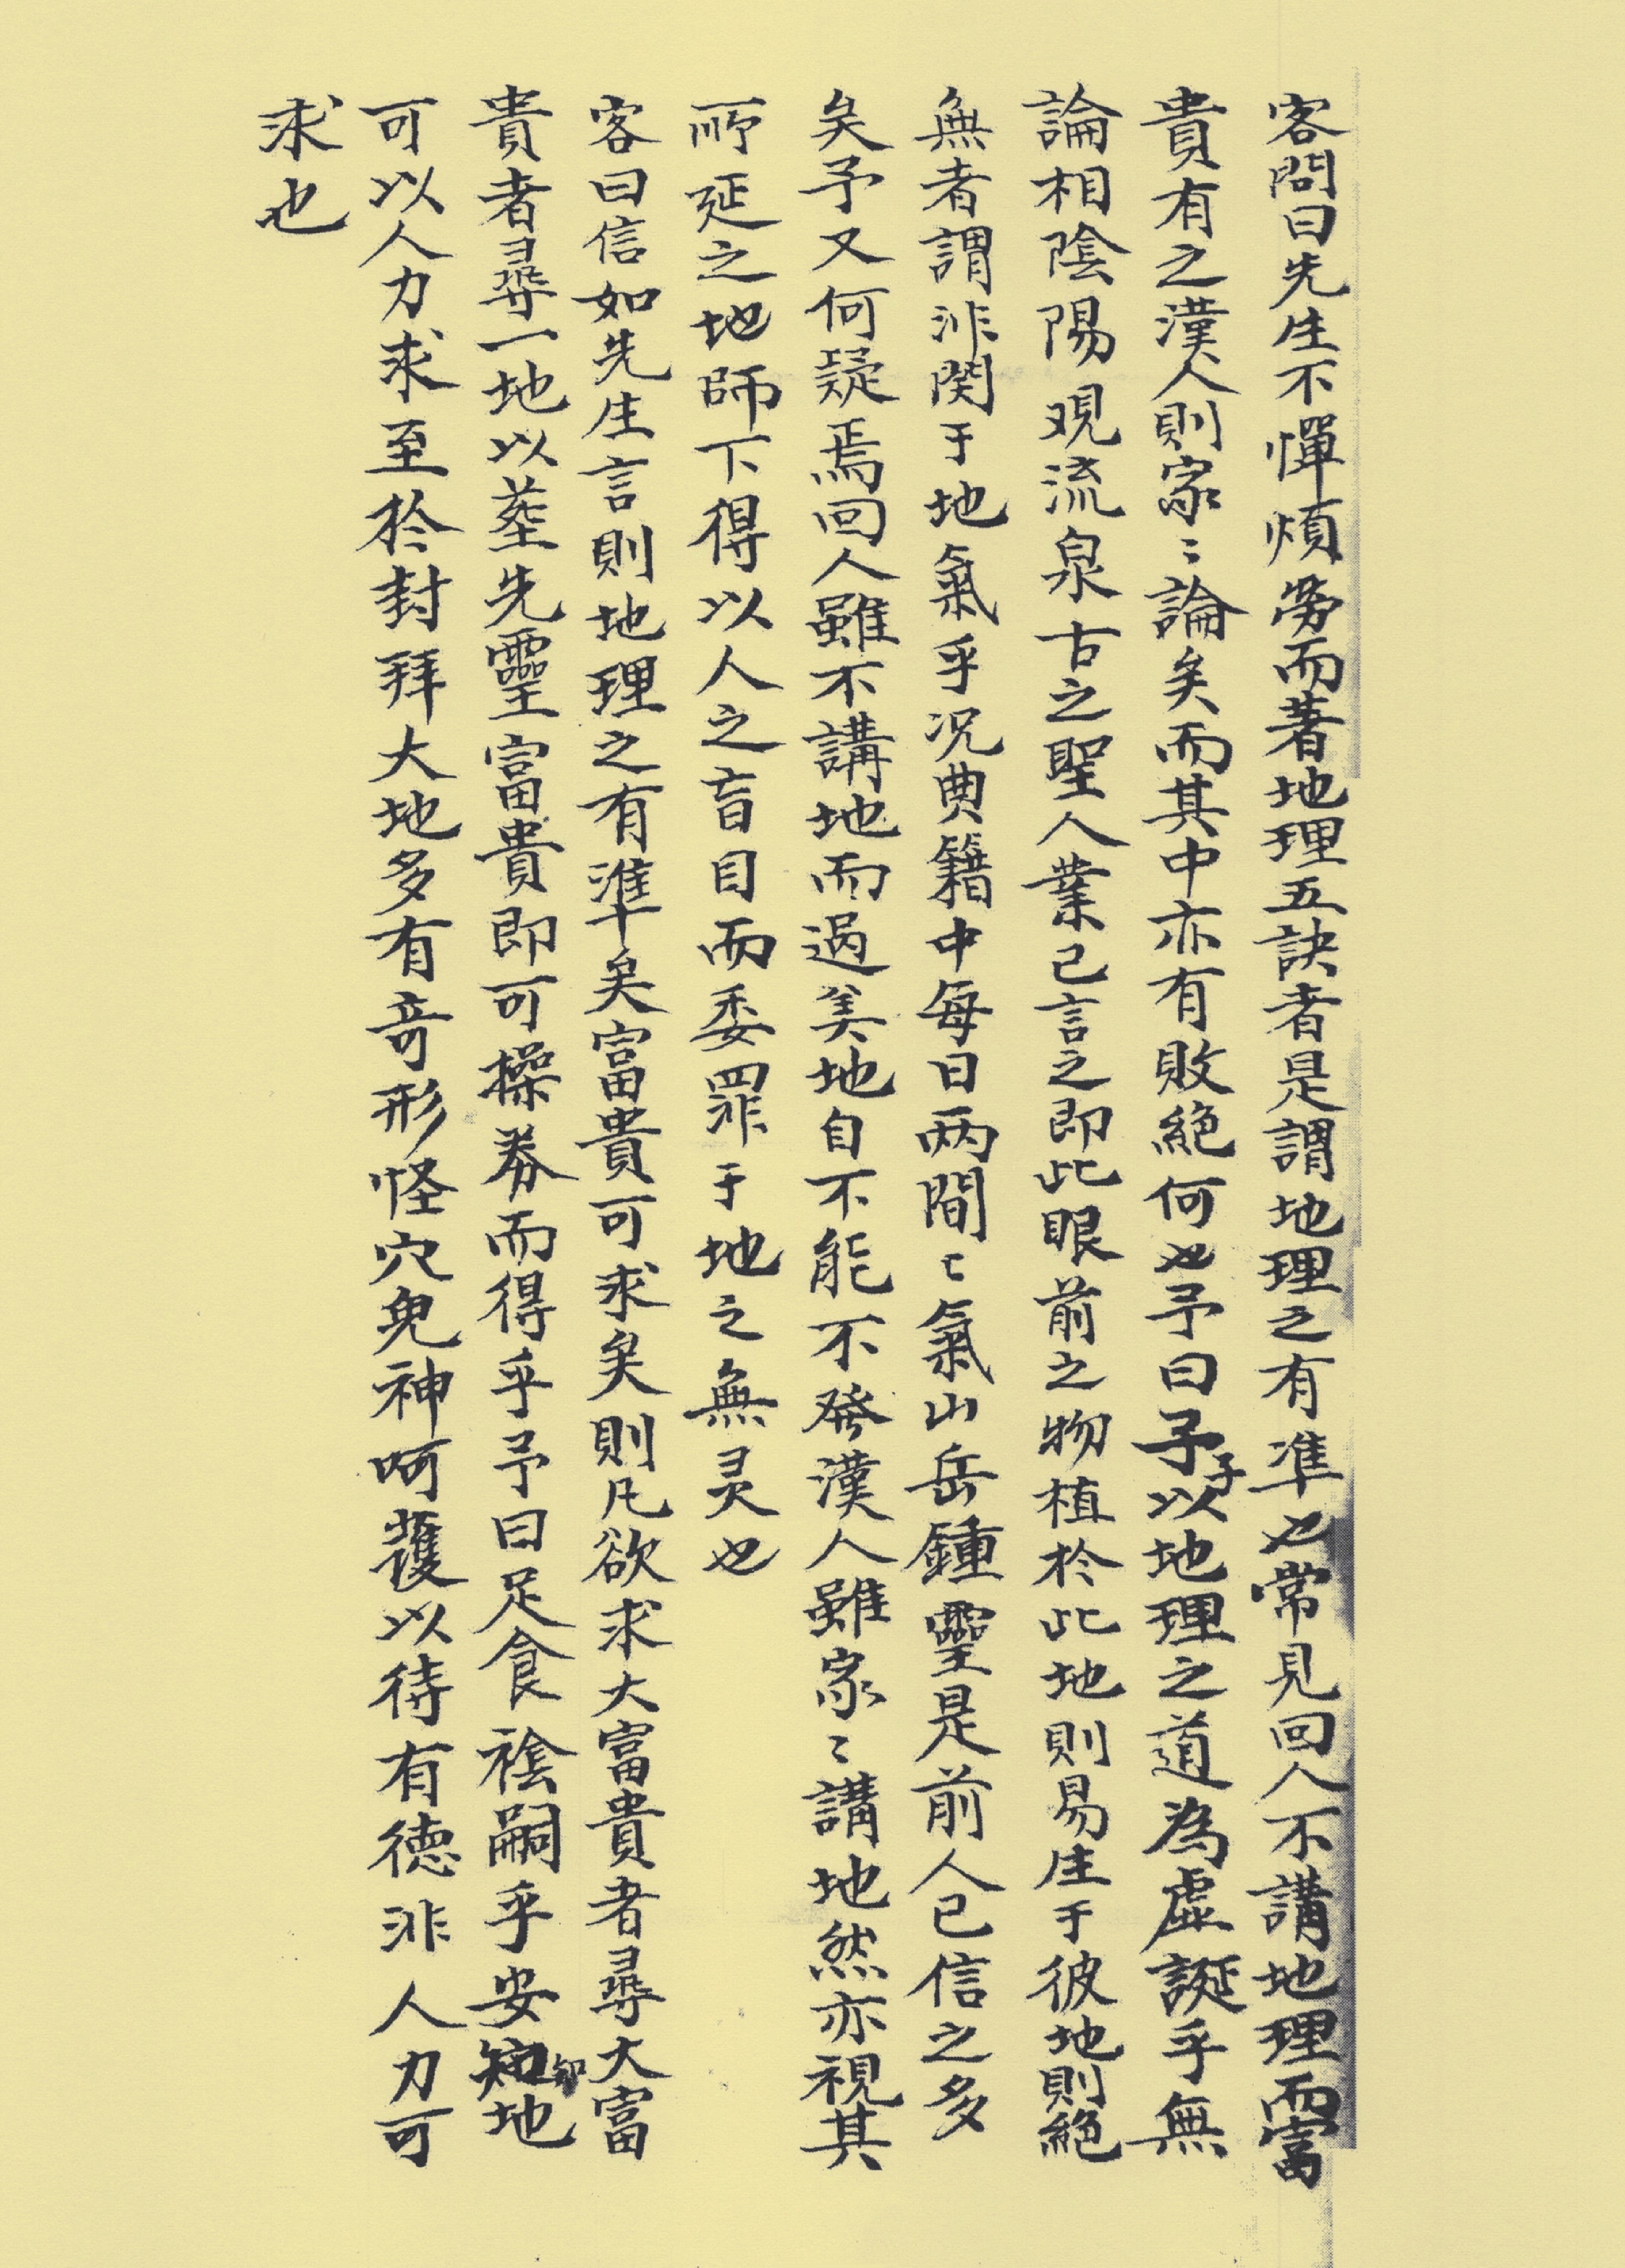 客問曰先生不憚煩勞而著地理五訣者是謂地理之有準也常見回人不講地理而富
貴有之漢人則家〻論矣而其中亦有敗絕何也予曰予予以地理之道為虛誕乎無
論相陰陽观流泉古之聖人業已言之即此眼前之物植於此地則易生于彼地則絕
無者謂非関于地氣乎况典籍中每日两間〻氣山岳鍾靈是前人已信之多
矣予又何疑焉回人雖不講地而過美地自不能不發漢人雖家〻講地然亦視其
所延之地師下得以人之盲目而委罪于地之無灵也
客曰信如先生言則地理之有準矣富貴可求矣則凡欲求大富貴者尋大富
貴者尋一地以塟先靈富貴即可操券而得乎予曰足食裕嗣乎安知知地
可以人力求至於封拜大地多有奇形怪穴鬼神呵護以待有德非人力可
求也